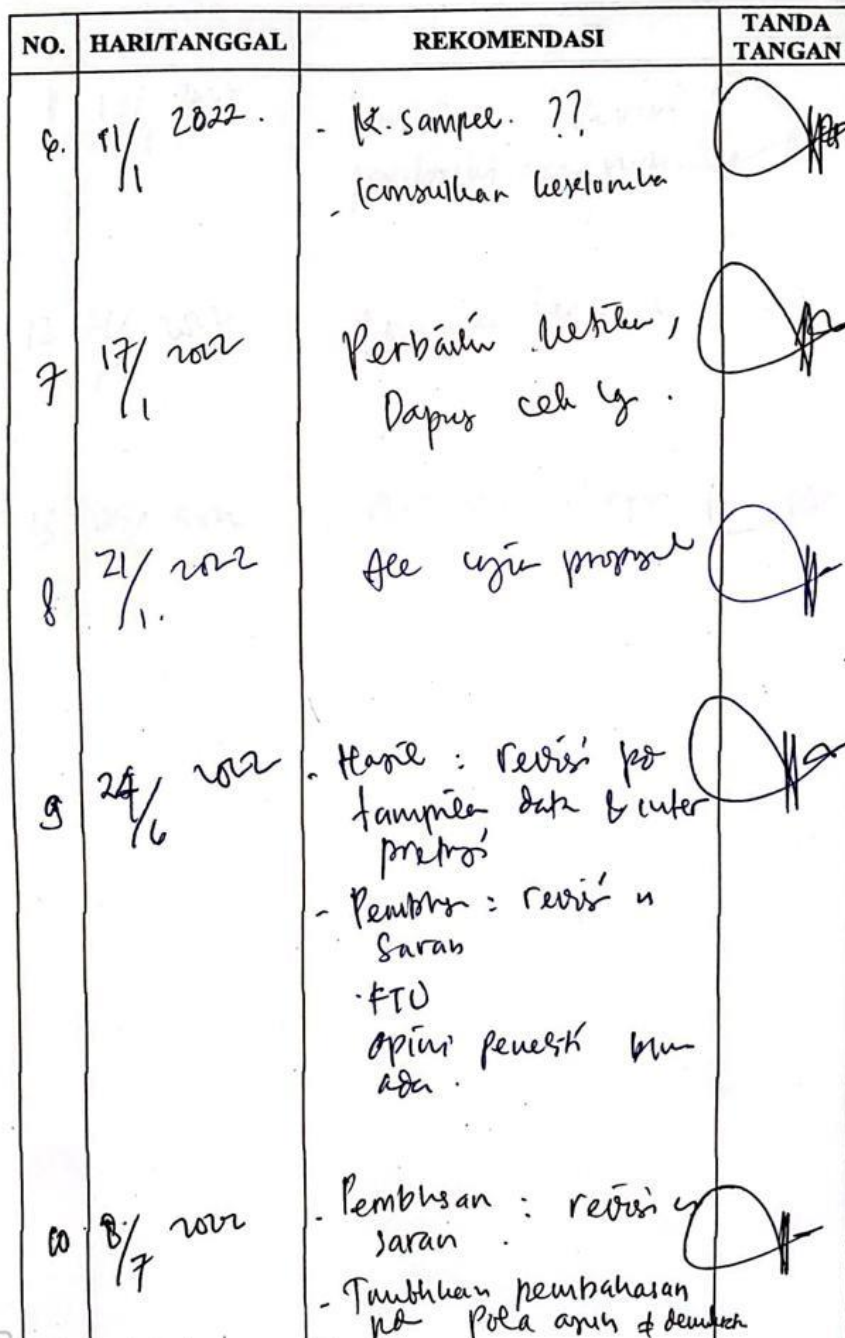 NO. HARI/TANGGAL REKOMENDASI TANDA TANGAN
6. 11/1 2022. - K. sampel. ??
- konsulkan
7 17/1 2022 Perbaiki
Dapus cek lg.
8 21/1. 2022 Acc ujian proposal
9 24/6 2022 - Hasil : revisi pd
tampilan data & inter
pretasi
- Pembhsn : revisi
saran
- FTU
opini peneliti blm
ada.
10 8/7 2022 - Pembhsan : revisi
saran.
- Tambhkan pembahasan
pd pola asuh